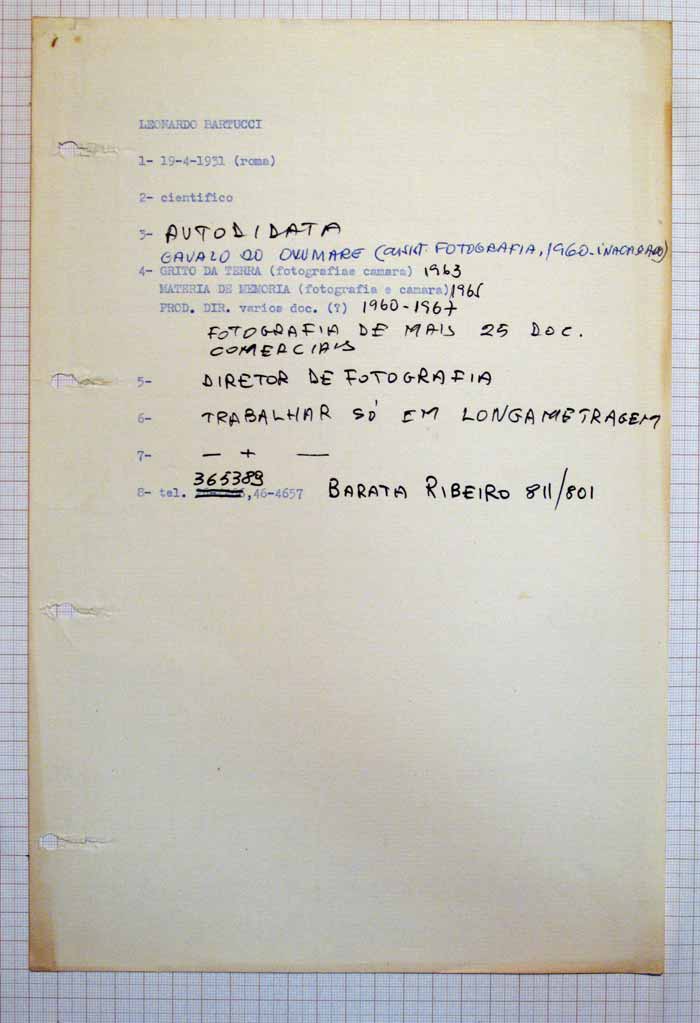 LEONARDO BARTUCCI
1- 19-4-1931 (roma)
2- cientifico
3- AUTODIDATA
CAVALO DO OXUMARE (ASSIST. FOTOGRAFIA, 1960-INACABADO)
4- GRITO DA TERRA (fotografiae camara) 1963
MATERIA DE MEMORIA (fotografia e camara) 1965
PROD. DIR. varios doc. (?) 1960-1967
FOTOGRAFIA DE MAIS 25 DOC.
COMERCIAIS
5- DIRETOR DE FOTOGRAFIA
6- TRABALHAR SÓ EM LONGAMETRAGEM
7- — + —
365389
8- tel. ,46-4657 BARATA RIBEIRO 811/801